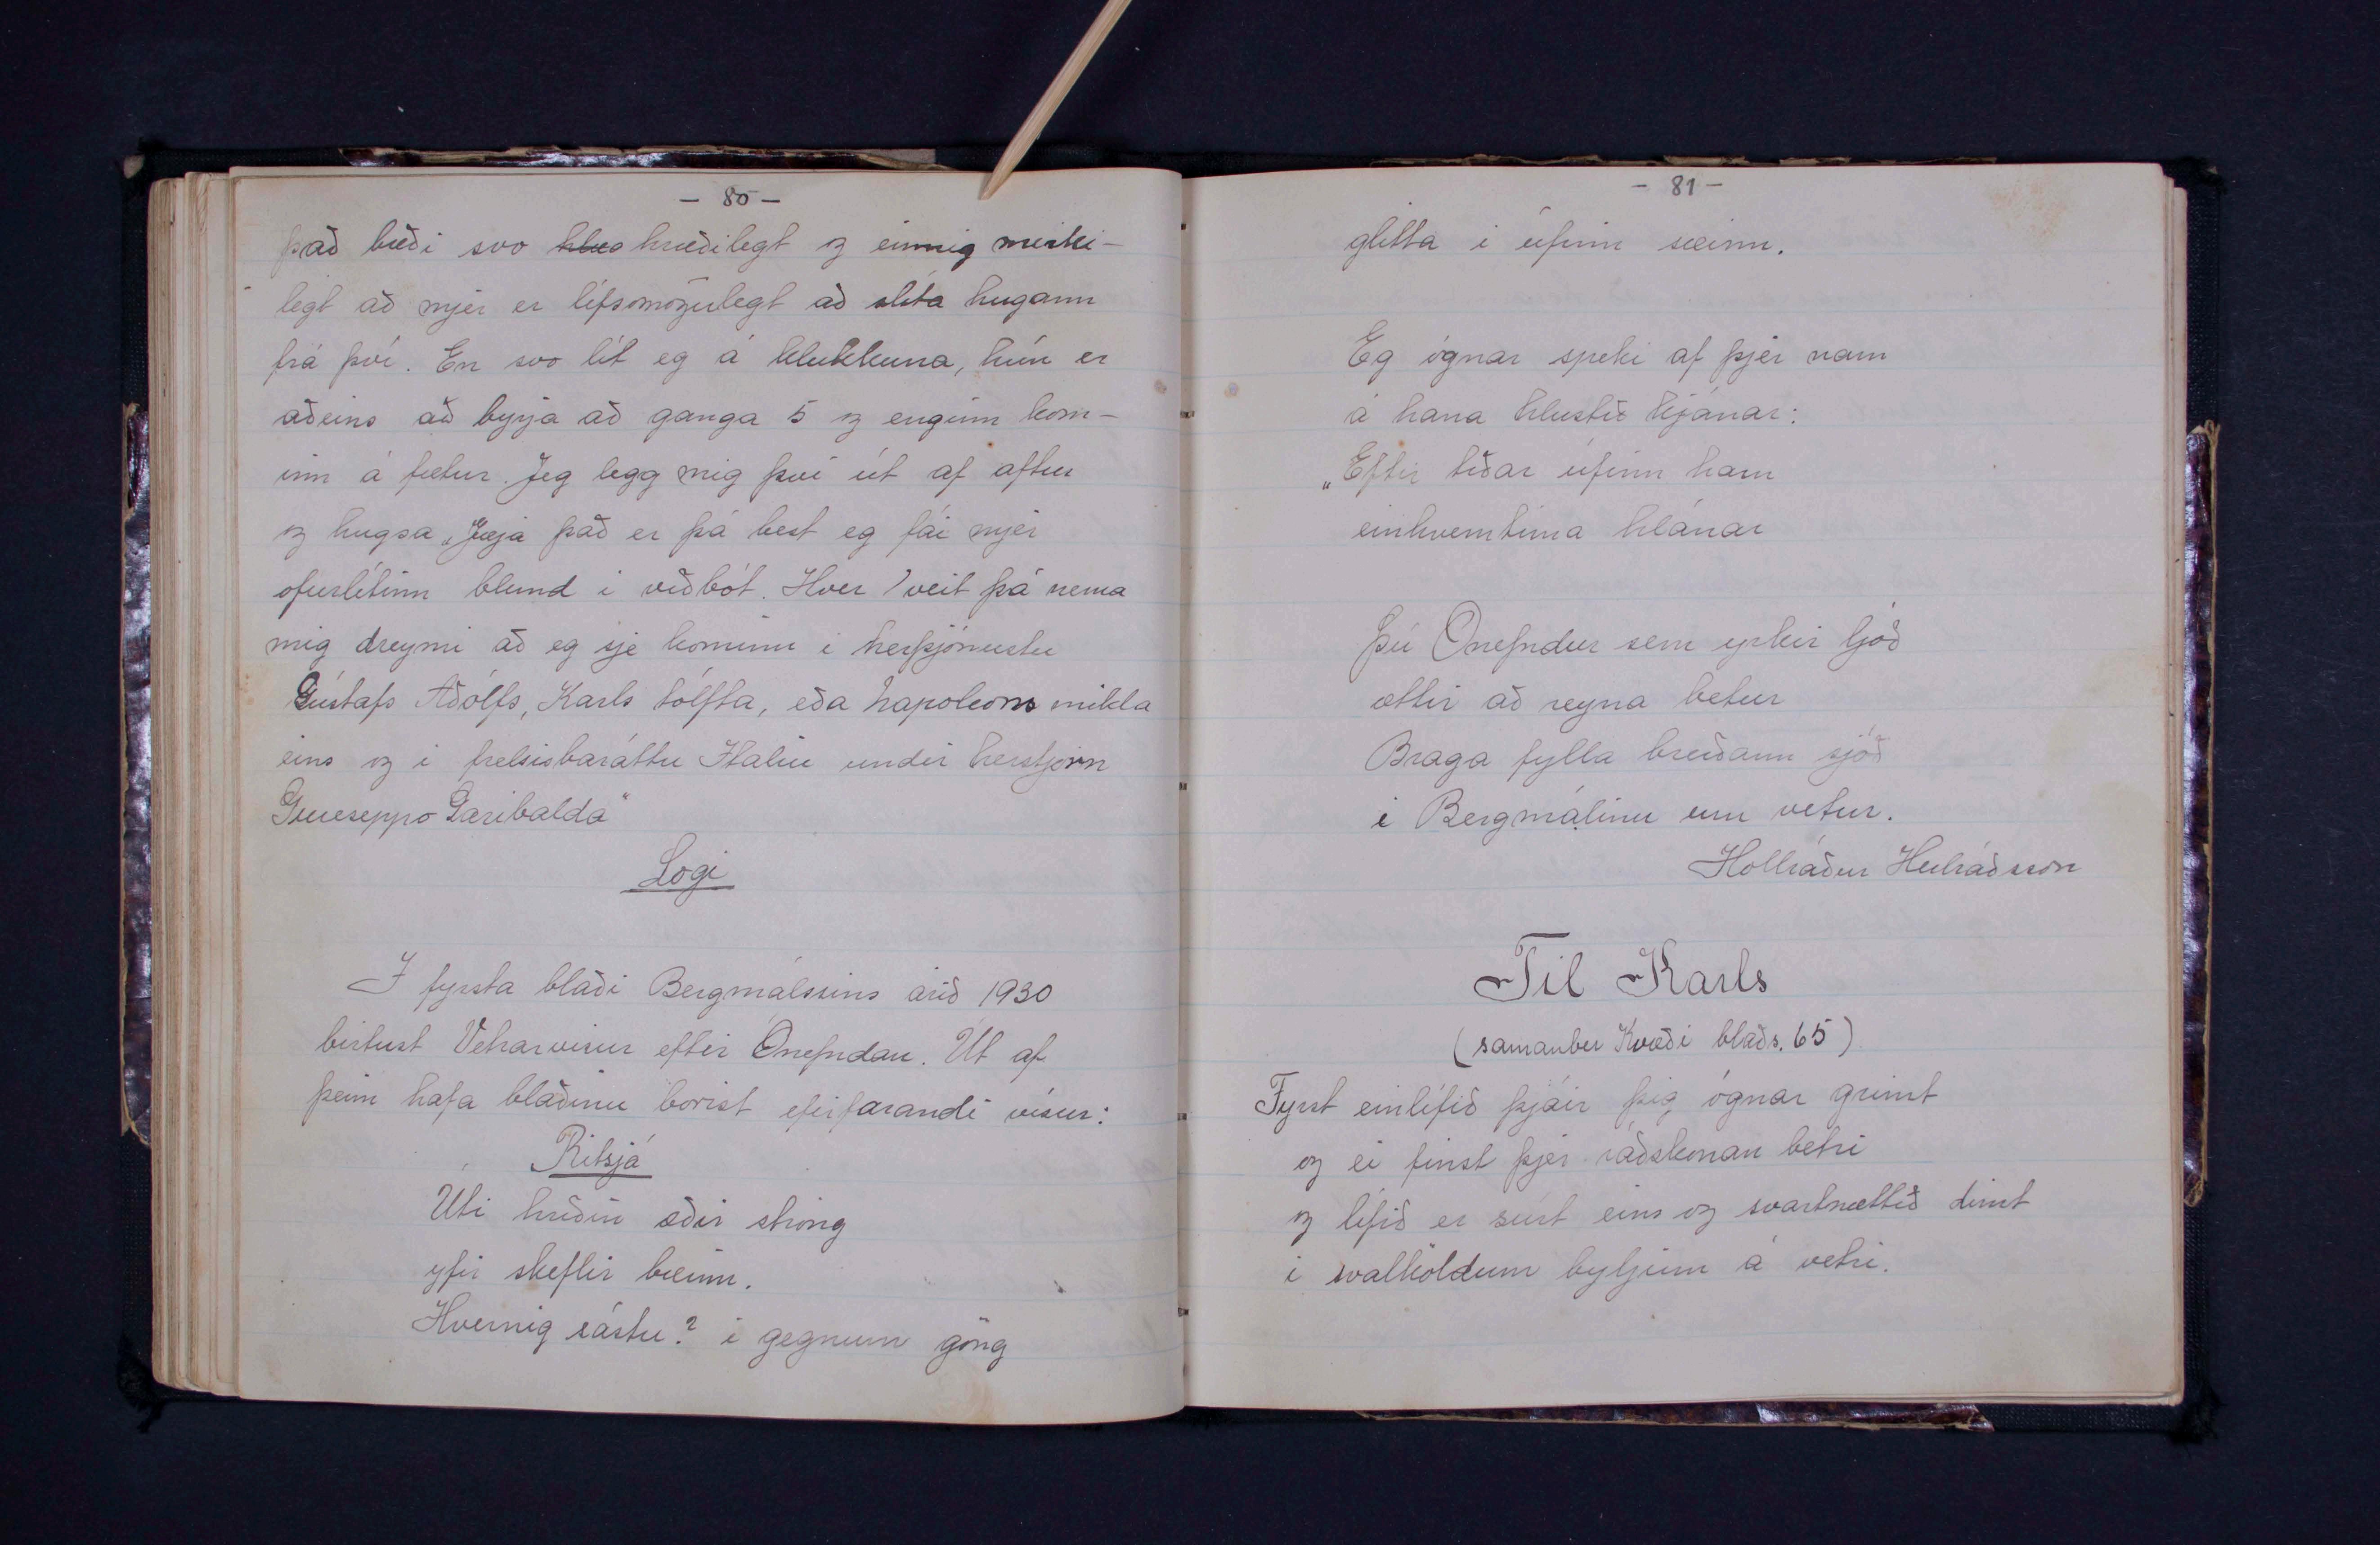 - 80 -
það bæði svo hlæo hræðilegt og einnig merki-
legt að mjer er lífsómögulegt að slíta hugann
frá því. En svo lít eg á klukkuna, hún er
aðeins að byrja að ganga 5 og enginn kom-
inn á fætur. Jeg legg mig því út af aftur
og hugsa „Jæja það er þá best eg fái mjer
ofurlítinn blund i viðbót. Hver veit þá nema
mig dreymi að eg sje kominn i herþjónustu
Gústafs Aðólfs, Karls tólfta, eða Napoleons mikla
eins og i frelsisbaráttu Italíu undir herstjórn
Giueseppo Garibalda"
Logi
I fyrsta blaði Bergmálssins árið 1930
birtust Vetrarvisur eftir Ónefndan. Út af
þeim hafa blaðinu borist efirfarandi vísur:
Ritsjá
Úti hríðin æðir ströng
yfir skeflir bæinn.
Hvernig sástu? i gegnum göng
- 81 -
glitta i úfinn sæinn.
Eg ógnar speki af þjer nam
á hana hlustið kjánar:
„Eftir tíðar úfinn ham
einhverntima hlánar
Þú Ónefndur sem yrkir ljóð
ættir að reyna betur
Braga fylla breiðann sjóð
i Bergmálinu um vetur.
Hollráður Heilráðsson
Til Karls
(samanber Kvæði blaðs. 65)
Fyrst einlífið þjáir þig ógnar grimt
og ei finst þjer ráðskonan betri
og lífið er súrt eins og svartnættið dimt
i svalköldum byljum á vetri.